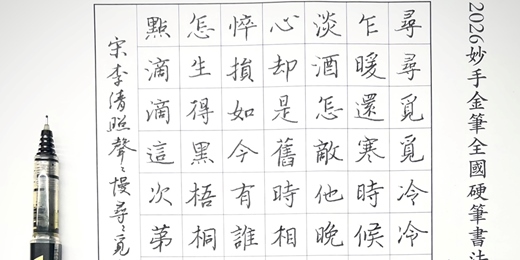 2026妙手金筆全國硬筆書法
尋尋覓覓冷冷
乍暖還寒時候
淡酒怎敵他晚
心却是舊時相
悴損如今有誰
怎生得黑梧桐
點滴滴這次第
宋李清照聲〻慢尋〻覓